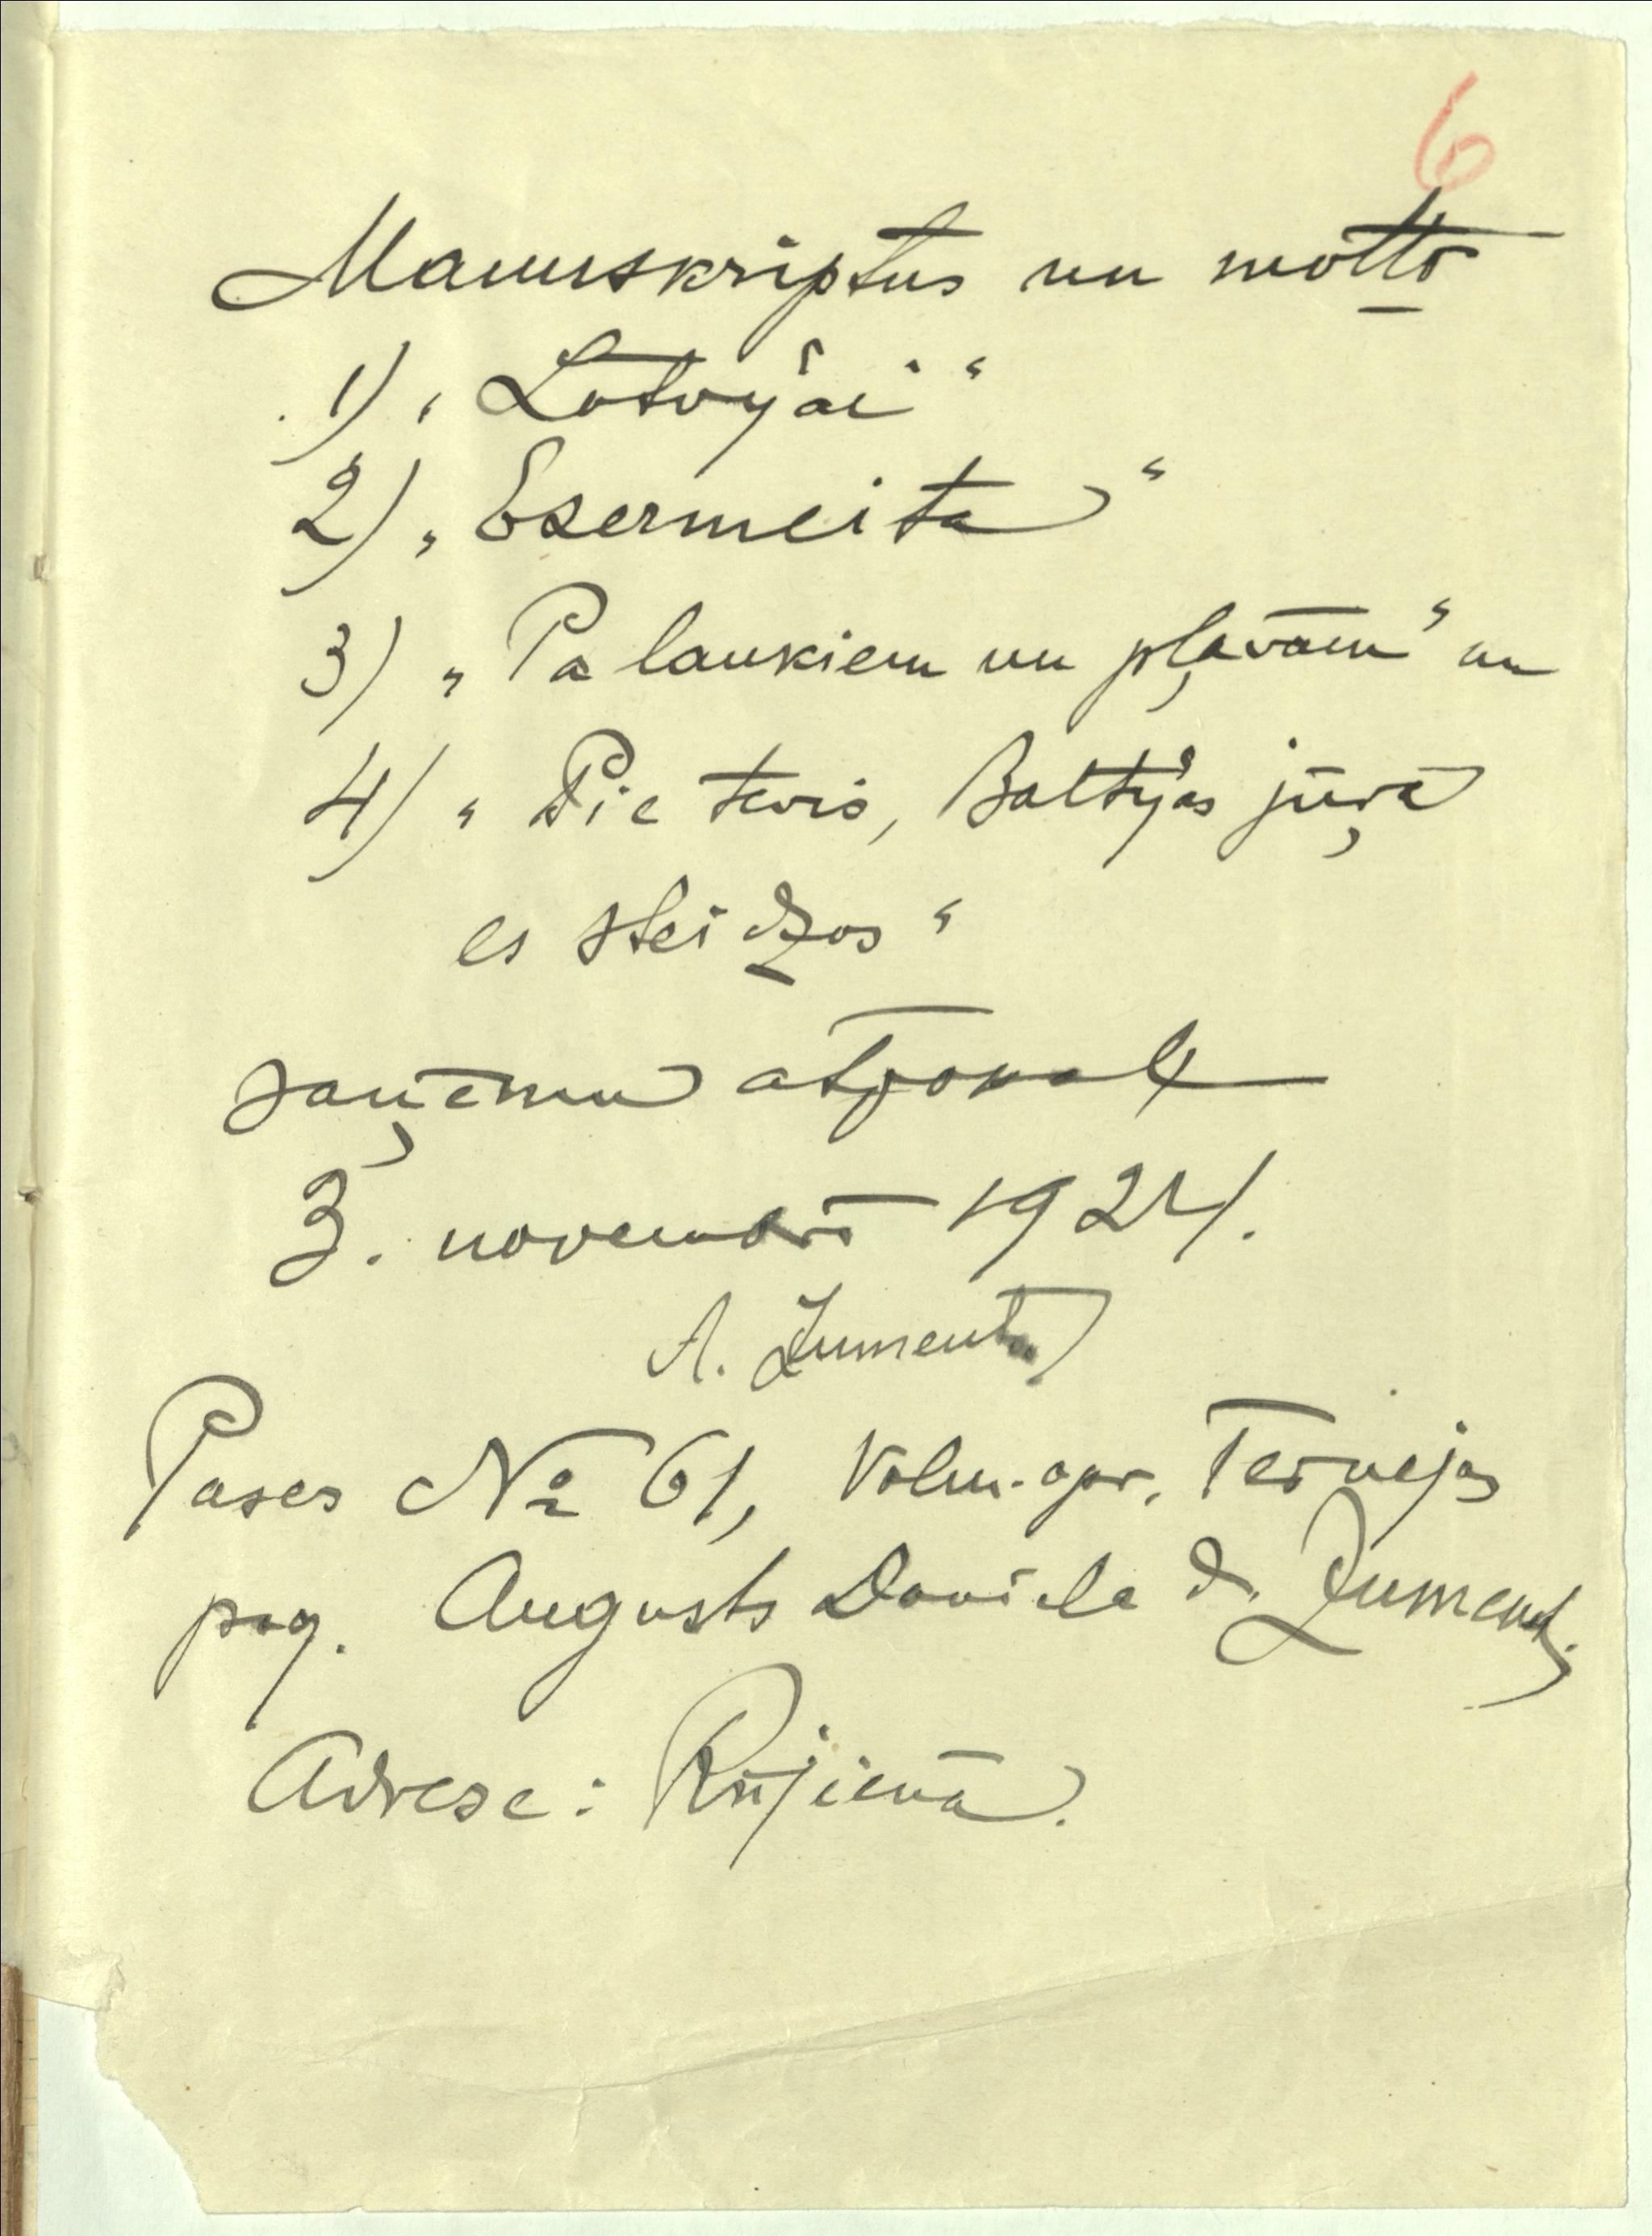 6
Manuskriptus un motto
1) „Latvijai“
2) „Esermeita“
3) „Pa laukiem un pļavām“ un
4) „Pie tevis, Baltijas jūŗa
es steidzos“
saņēmu atpakaļ
3. novembrī 1924.
A. Žuments
Pases № 61, Valm. apr. Ternejas
pag. Augusts Daviela d. Žument.
Adrese: Rūjienā.